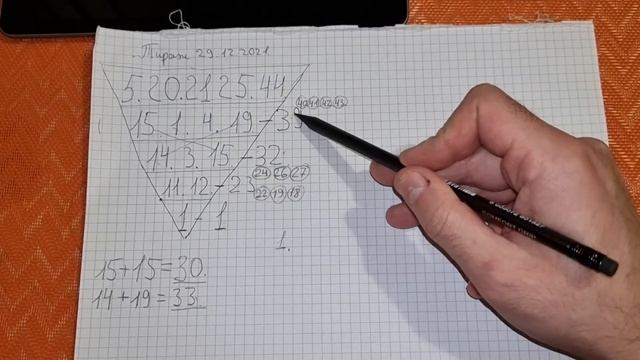 Тираж 29.12.2021
5.20.21 25.44
15.1.4.19-39 40 41 42 43
14.3.15-32
24 26 27
11.12-23
22 19 18
1-1
1.
15+15=30.
14+19=33.